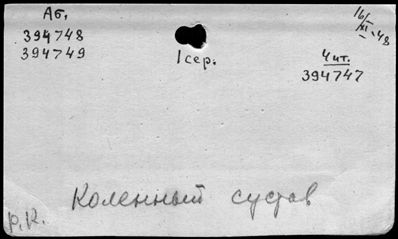 Аб.
394748
394749
1 сер.
16/XI-48
Чит.
394747
Коленный сустав
Р.К.